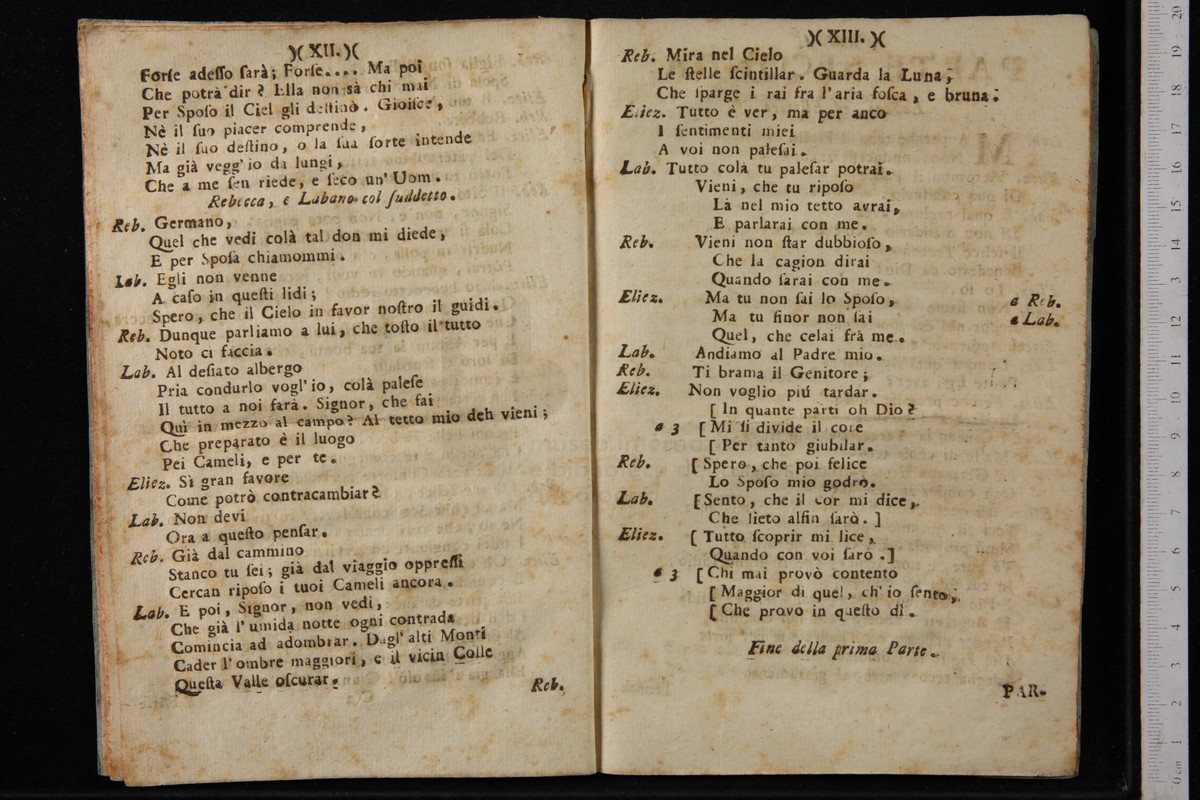 )( XII. )(
Forſe adeſſo ſarà; Forſe.... Ma poi
Che potrà dir? Ella non sà chi mai
Per Spoſo il Ciel gli deſtinò. Gioiſce,
Nè il ſuo piacer comprende,
Nè il ſuo deſtino, o la ſua ſorte intende
Ma già vegg' io da lungi,
Che a me ſen riede, e ſeco un' Uom.
Rebecca, e Labano col ſuddetto.
Reb. Germano,
Quel che vedi colà tal don mi diede,
E per Spoſa chiamommi.
Lab. Egli non venne
A caſo in queſti lidi;
Spero, che il Cielo in favor noſtro il guidi.
Reb. Dunque parliamo a lui, che toſto il tutto
Noto ci faccia.
Lab. Al deſiato albergo
Pria condurlo vogl' io, colà paleſe
Il tutto a noi farà. Signor, che fai
Quì in mezzo al campo? Al tetto mio deh vieni;
Che preparato è il luogo
Pei Cameli, e per te.
Eliez. Sì gran favore
Come potrò contracambiar?
Lab. Non devi
Ora a queſto penſar.
Reb. Già dal cammino
Stanco tu ſei; già dal viaggio oppreſſi
Cercan ripoſo i tuoi Cameli ancora.
Lab. E poi, Signor, non vedi,
Che già l' umida notte ogni contrada
Comincia ad adombrar. Dagl' alti Monti
Cader l' ombre maggiori, e il vicin Colle
Queſta Valle oſcurar.
Reb.
)( XIII. )(
Reb. Mira nel Cielo
Le ſtelle ſcintillar. Guarda la Luna,
Che ſparge i rai fra l' aria foſca, e bruna.
Eliez. Tutto è ver, ma per anco
I ſentimenti miei
A voi non paleſai.
Lab. Tutto colà tu paleſar potrai.
Vieni, che tu ripoſo
Là nel mio tetto avrai,
E parlarai con me.
Reb. Vieni non ſtar dubbioſo,
Che la cagion dirai
Quando ſarai con me.
Eliez. Ma tu non ſai lo Spoſo, a Reb.
Ma tu finor non ſai a Lab.
Quel, che celai frà me.
Lab. Andiamo al Padre mio.
Reb. Ti brama il Genitore;
Eliez. Non voglio piú tardar.
[ In quante parti oh Dio?
a 3 [ Mi ſi divide il core
[ Per tanto giubilar.
Reb. [ Spero, che poi felice
Lo Spoſo mio godrò.
Lab. [ Sento, che il cor mi dice,
Che lieto alfin ſarò. ]
Eliez. [ Tutto ſcoprir mi lice,
Quando con voi ſarò. ]
a 3 [ Chi mai provò contento
[ Maggior di quel, ch' io ſento,
[ Che provo in queſto dì.
Fine della prima Parte.
PAR-
20
19
18
17
16
15
14
13
12
11
10
9
8
7
6
5
4
3
2
1
0 cm